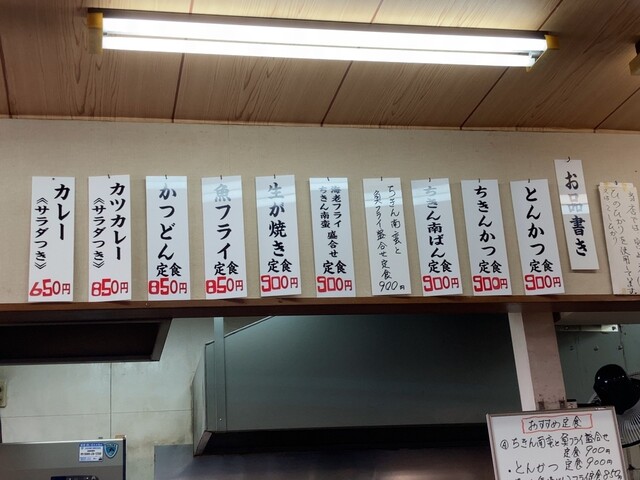 お品書き
とんかつ定食
900円
ちきんかつ
定食
900円
ちきん南ばん
定食
900円
ちきん南蛮と
魚フライ盛合せ
定食
900円
海老フライ
ちきん南蛮 盛合せ
定食
900円
生が焼き
定食
900円
魚フライ
定食
850円
かつどん
定食
850円
カツカレー
《サラダつき》
850円
カレー
《サラダつき》
650円
おすすめ定食
ちきん南蛮と魚フライ盛合せ
定食 900円
・とんかつ 定食 900円